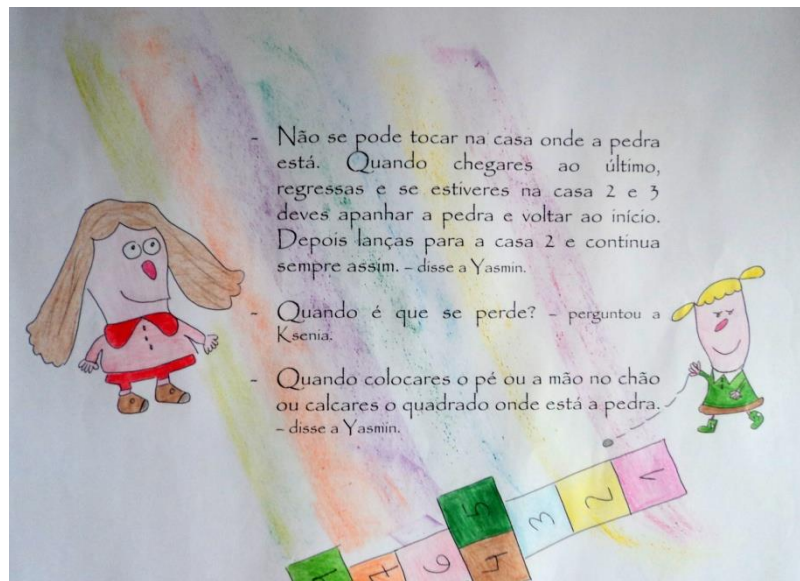 - Não se pode tocar na casa onde a pedra
está. Quando chegares ao último,
regressas e se estiveres na casa 2 e 3
deves apanhar a pedra e voltar ao início.
Depois lanças para a casa 2 e continua
sempre assim. – disse a Yasmin.
- Quando é que se perde? – perguntou a
Ksenia.
- Quando colocares o pé ou a mão no chão
ou calcares o quadrado onde está a pedra.
– disse a Yasmin.
1
2
3
5
4
6
7